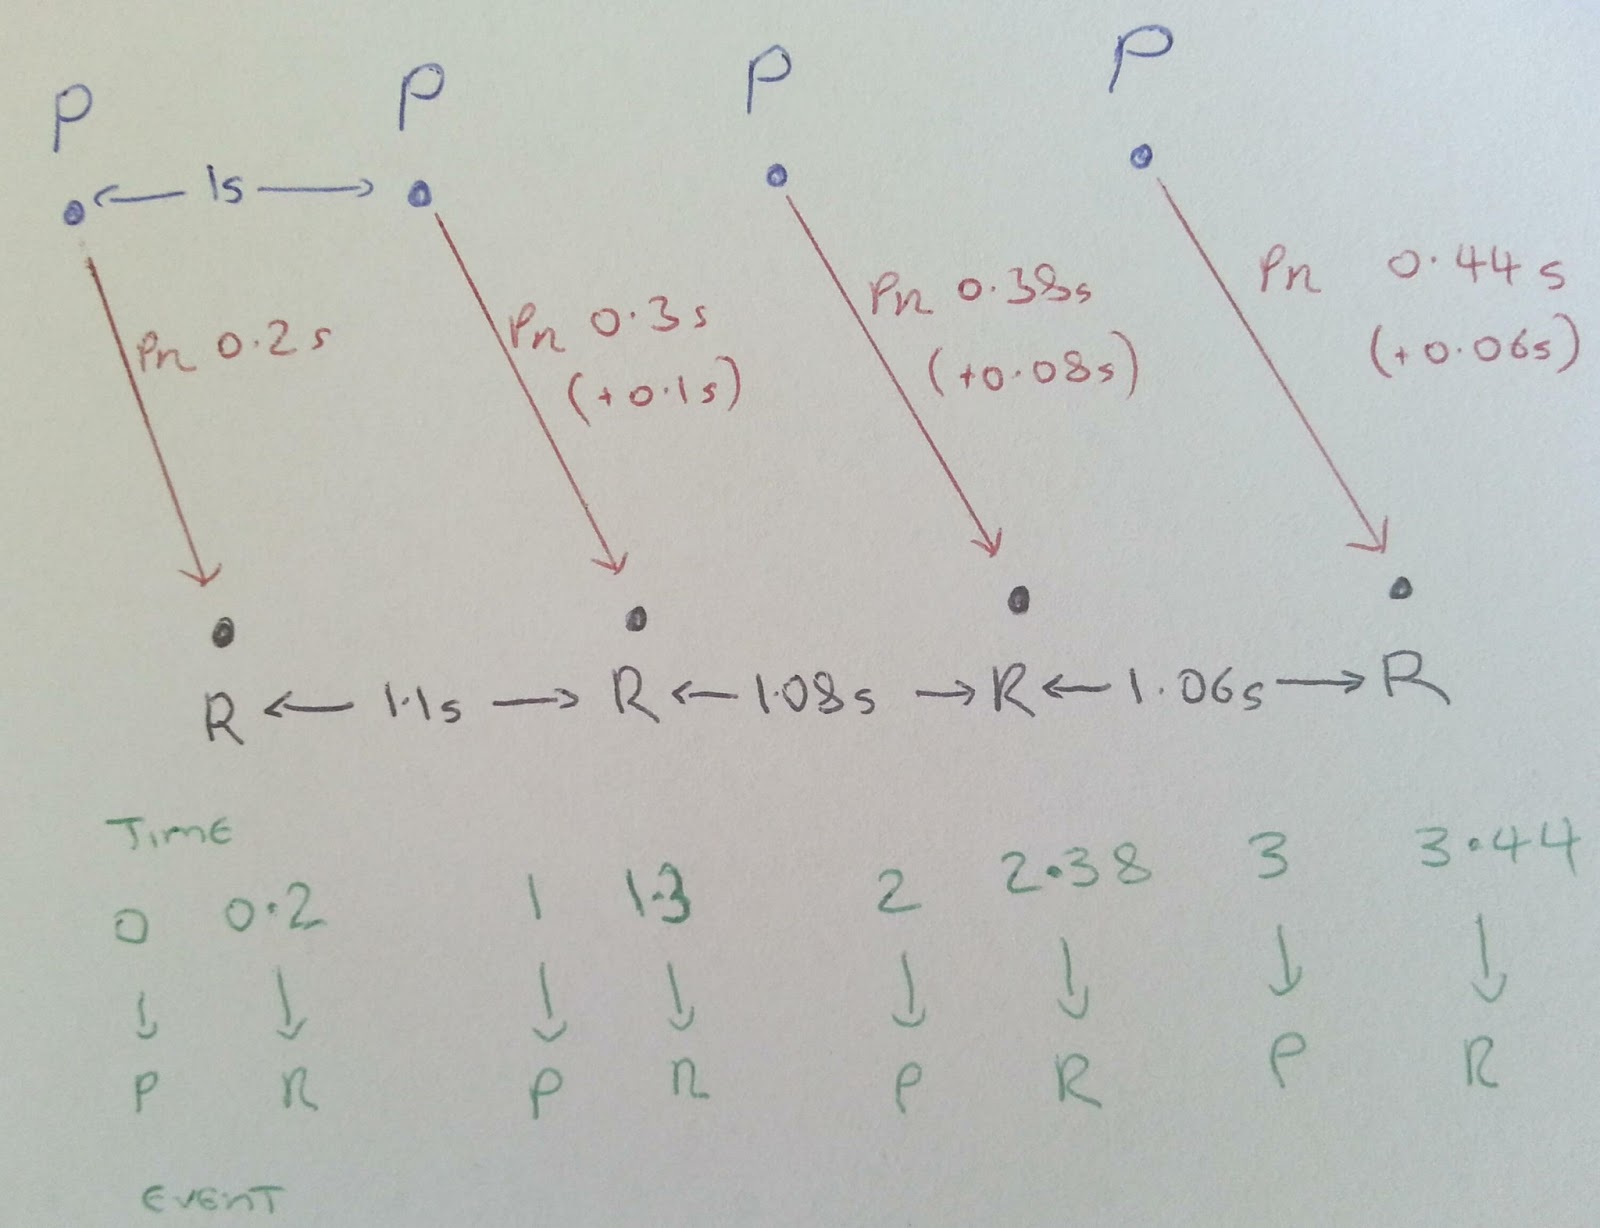 P P P P
← 1s →
PR 0.2s PR 0.3s PR 0.38s PR 0.44s
(+0.1s) (+0.08s) (+0.06s)
R ← 1.1s → R ← 1.08s → R ← 1.06s → R
TIME
0 0.2 1 1.3 2 2.38 3 3.44
↓ ↓ ↓ ↓ ↓ ↓ ↓ ↓
P R P R P R P R
EVENT